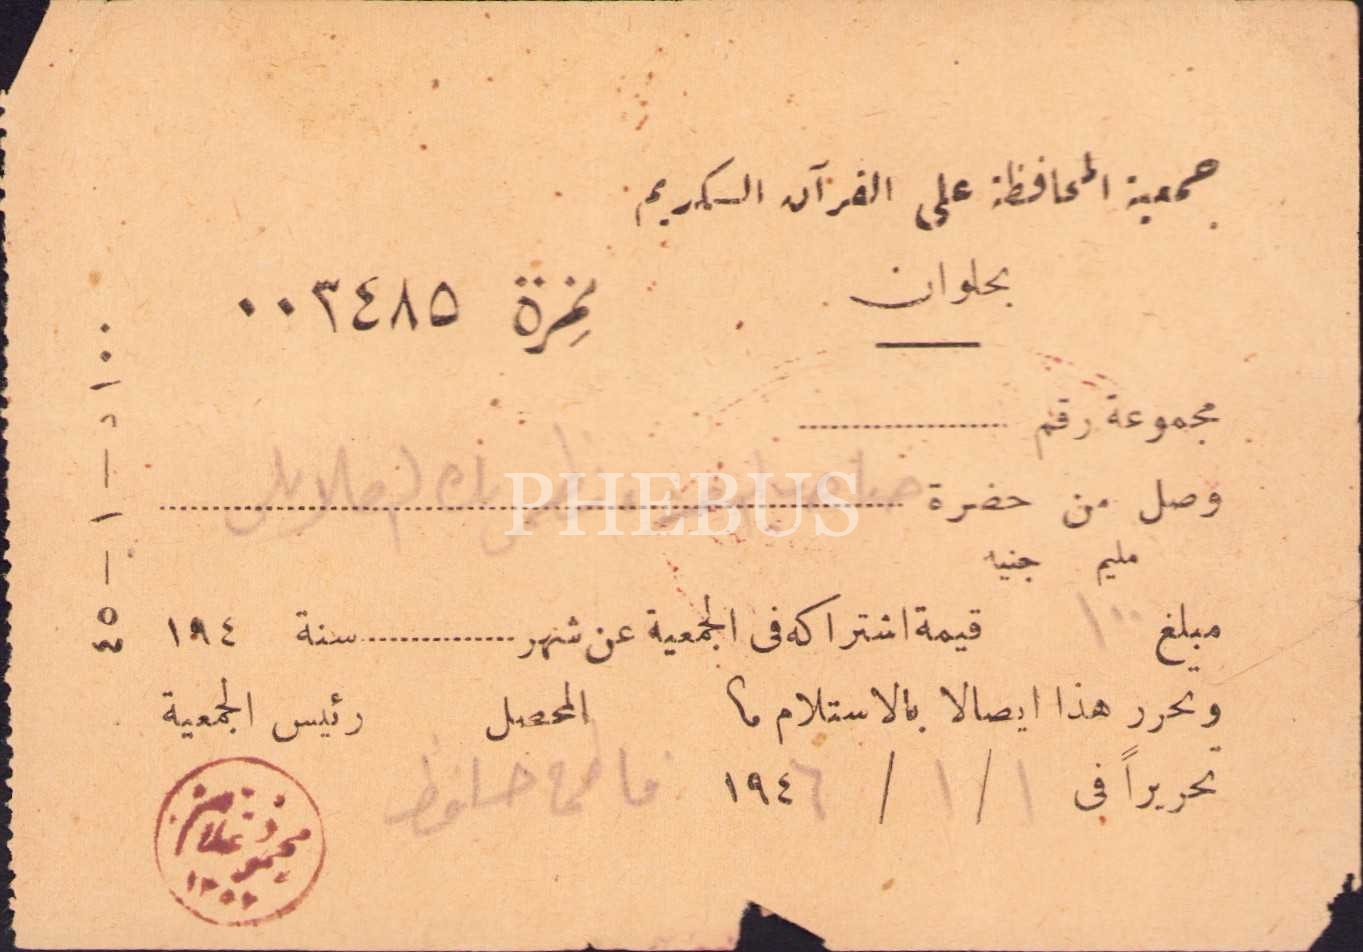 جمعية المحافظة على القرآن الكريم
بحلوان
نمرة ٠٠٣٤٨٥
مجموعة رقم
وصل من حضرة
PHEBUS
مليم جنيه
مبلغ ١٠٠ قيمة اشتراكه فى الجمعية عن شهر سنة ١٩٤
وتحرر هذا ايصالا بالاستلام م
المحصل رئيس الجمعية
تحريراً فى ١ / ١ / ١٩٤٦